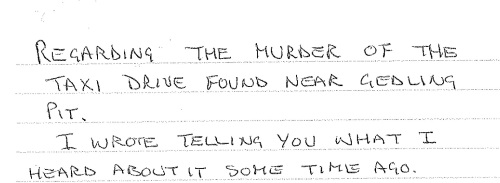 REGARDING THE MURDER OF THE
TAXI DRIVE FOUND NEAR GEDLING
PIT.
I WROTE TELLING YOU WHAT I
HEARD ABOUT IT SOME TIME AGO.